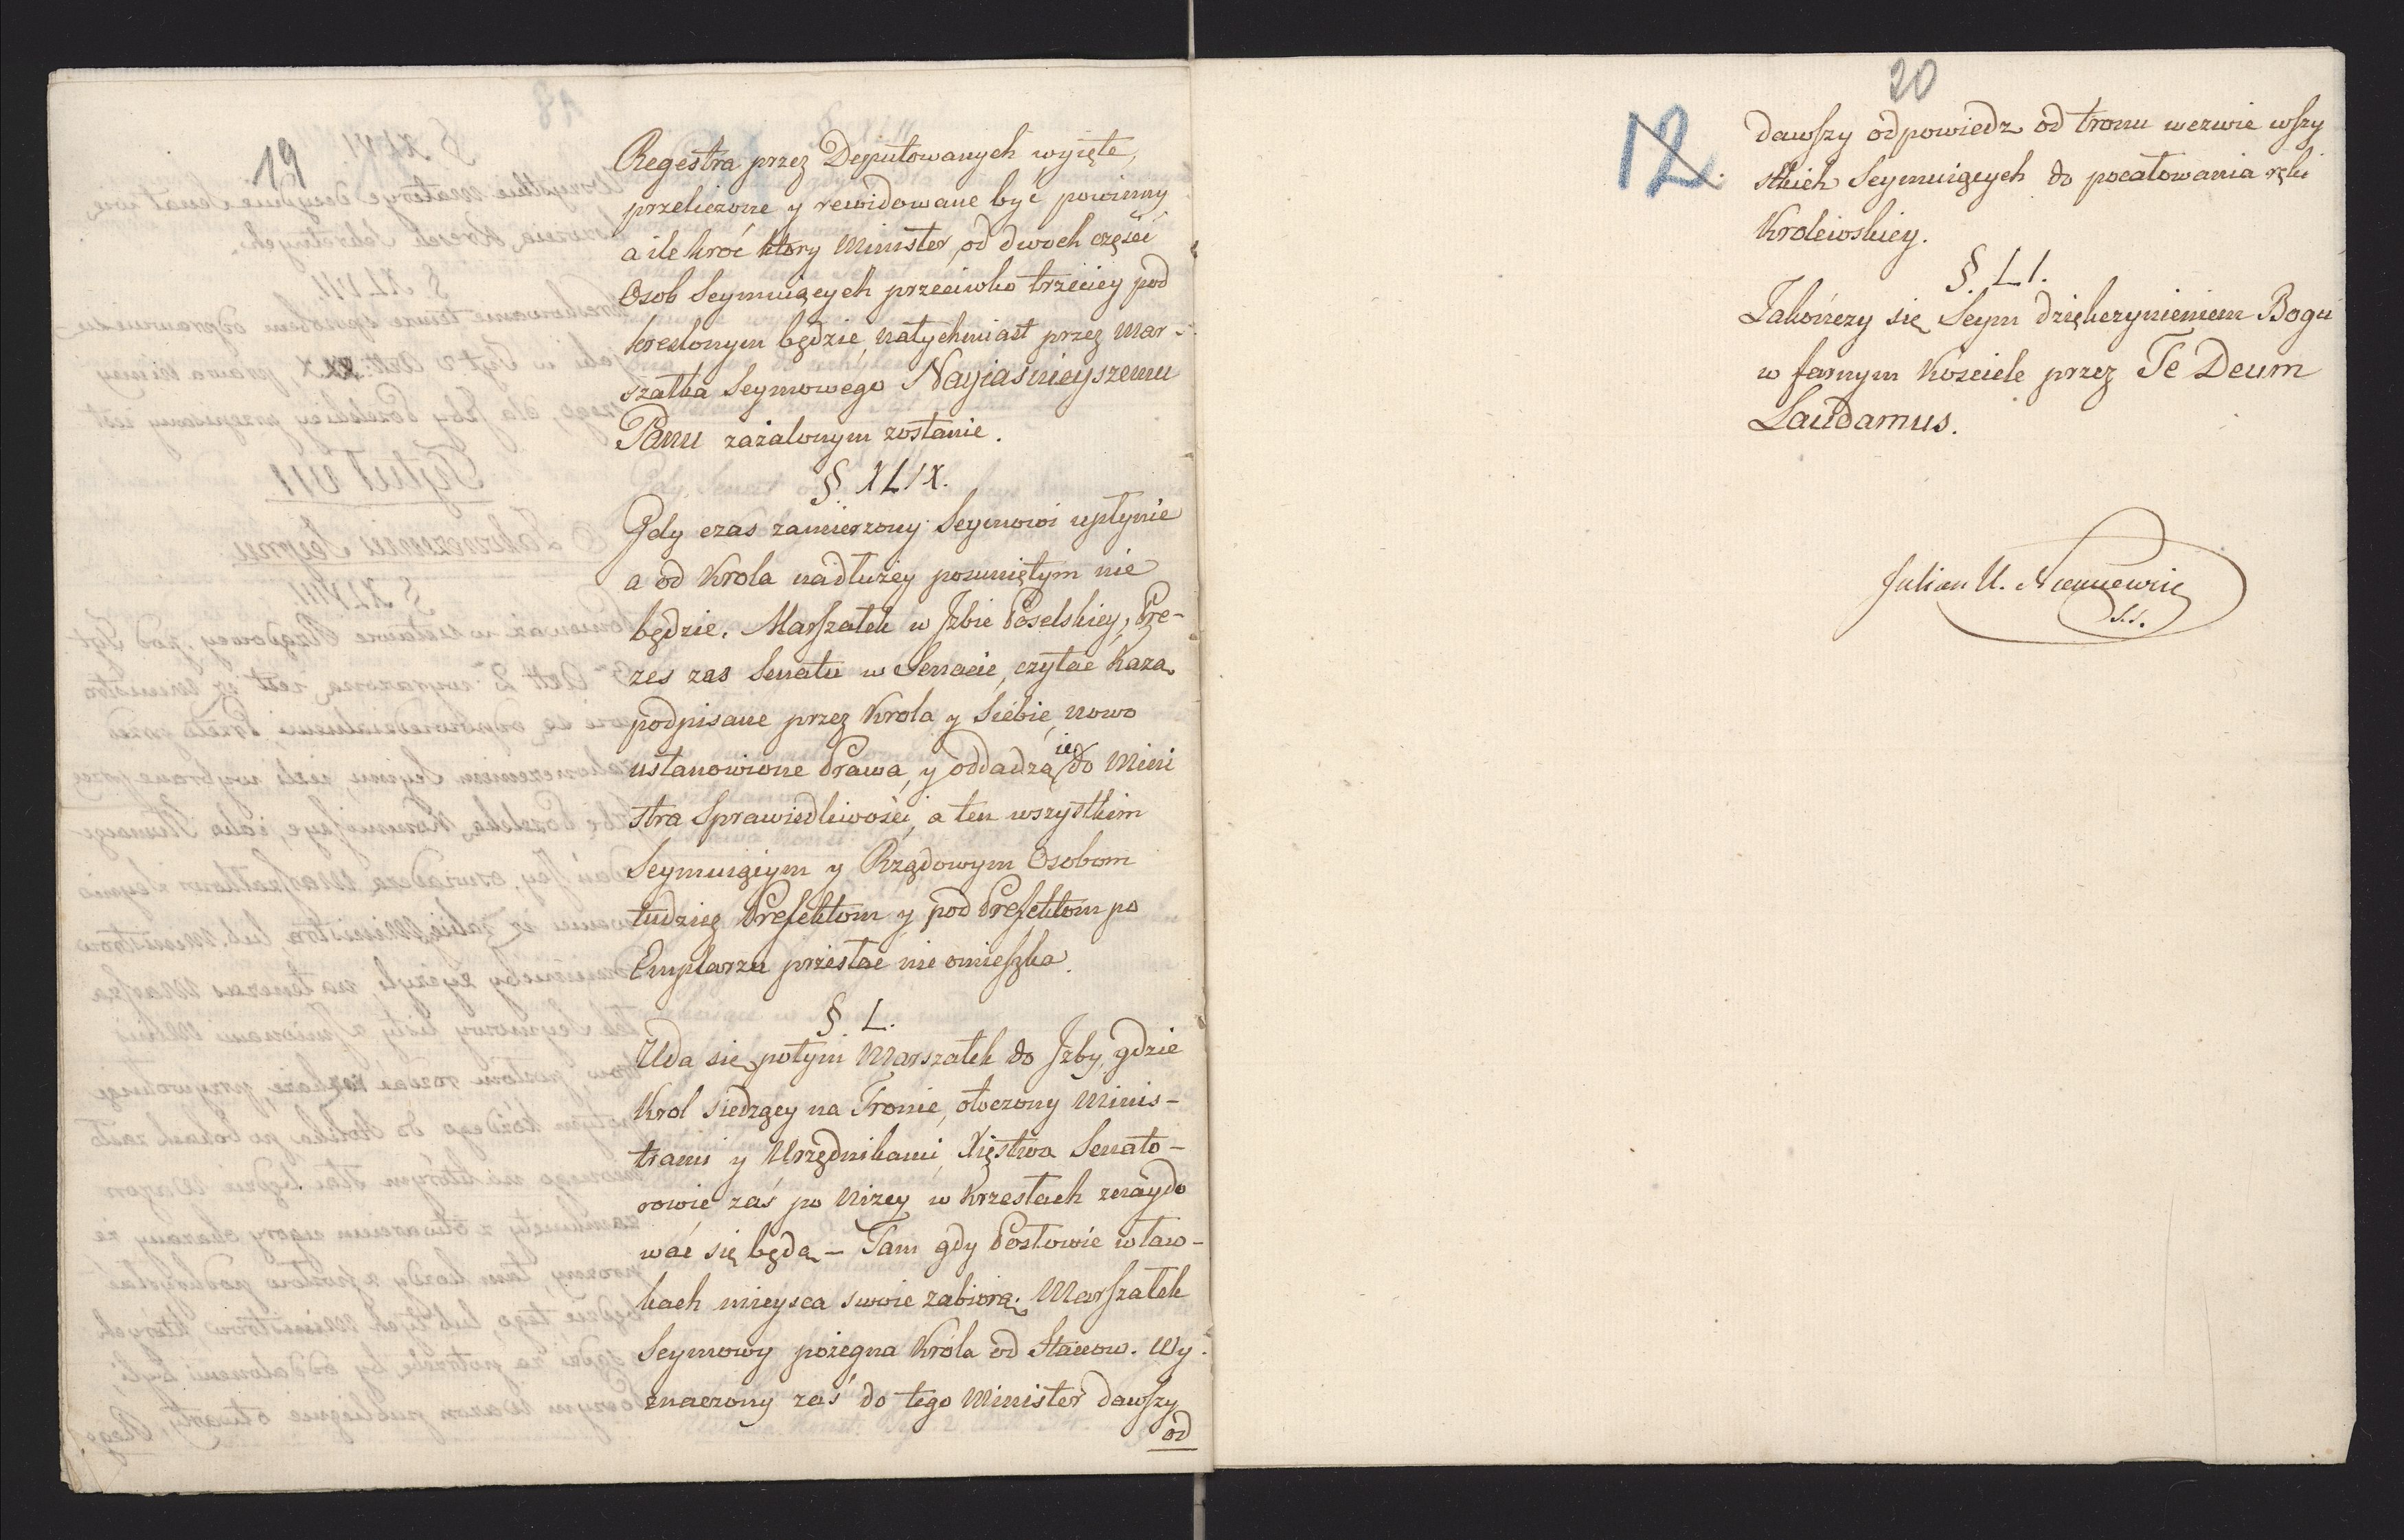 19
Regestra przez Deputowanych wyięte,
przeliczone y rewidowane być powinny
a ile kroć ktory Minister od dwoch części
Osob Seymuiących przeciwko trzeciey pod
kreslonym będzie, natychmiast przez Mar-
szałka Seymowego Nayiaśnieyszemu
Panu zażalonym zostanie.
§. XLIX.
Gdy czas zamierzony Seymowi upłynie
a od Krola nadłużey posuniętym nie
będzie. Marszałek w Izbie Poselskiey, Pre-
zes zas Senatu w Senacie, czytać każą
podpisane przez Krola y Siebie, nowo
ustanowione Prawa, y oddadzą ie do Mini
stra Sprawiedliwości, a ten wszystkim
Seymuiąiym y Rządowym Osobom
tudzież Prefektom y pod Prefektom po
Exmplarzu przesłać nie omieszka.
§. L.
Uda się potym Marszałek do Izby, gdzie
Krol siedzący na Tronie, otoczony Minis-
trami y Urzędnikami, Xięstwa Senato-
rowie zaś po niżey w Krzesłach znaydo
wać się będą - Tam gdy Posłowie w ław-
kach mieysca swoie zabiorą. Marszałek
Seymowy pożegna Króla od Stanow. Wy-
znaczony zaś do tego Minister dawszy
od
20
12.
dawszy odpowiedz od tronu wezwie wszy
stkich Seymuiących do pocałowania ręki
Krolewskiey.
§. LI.
Zakończy się Seym dziękczynieniem Bogu
w farnym Kosciele przez Te Deum
Laudamus.
Julian U. Niemcewicz
S.S.